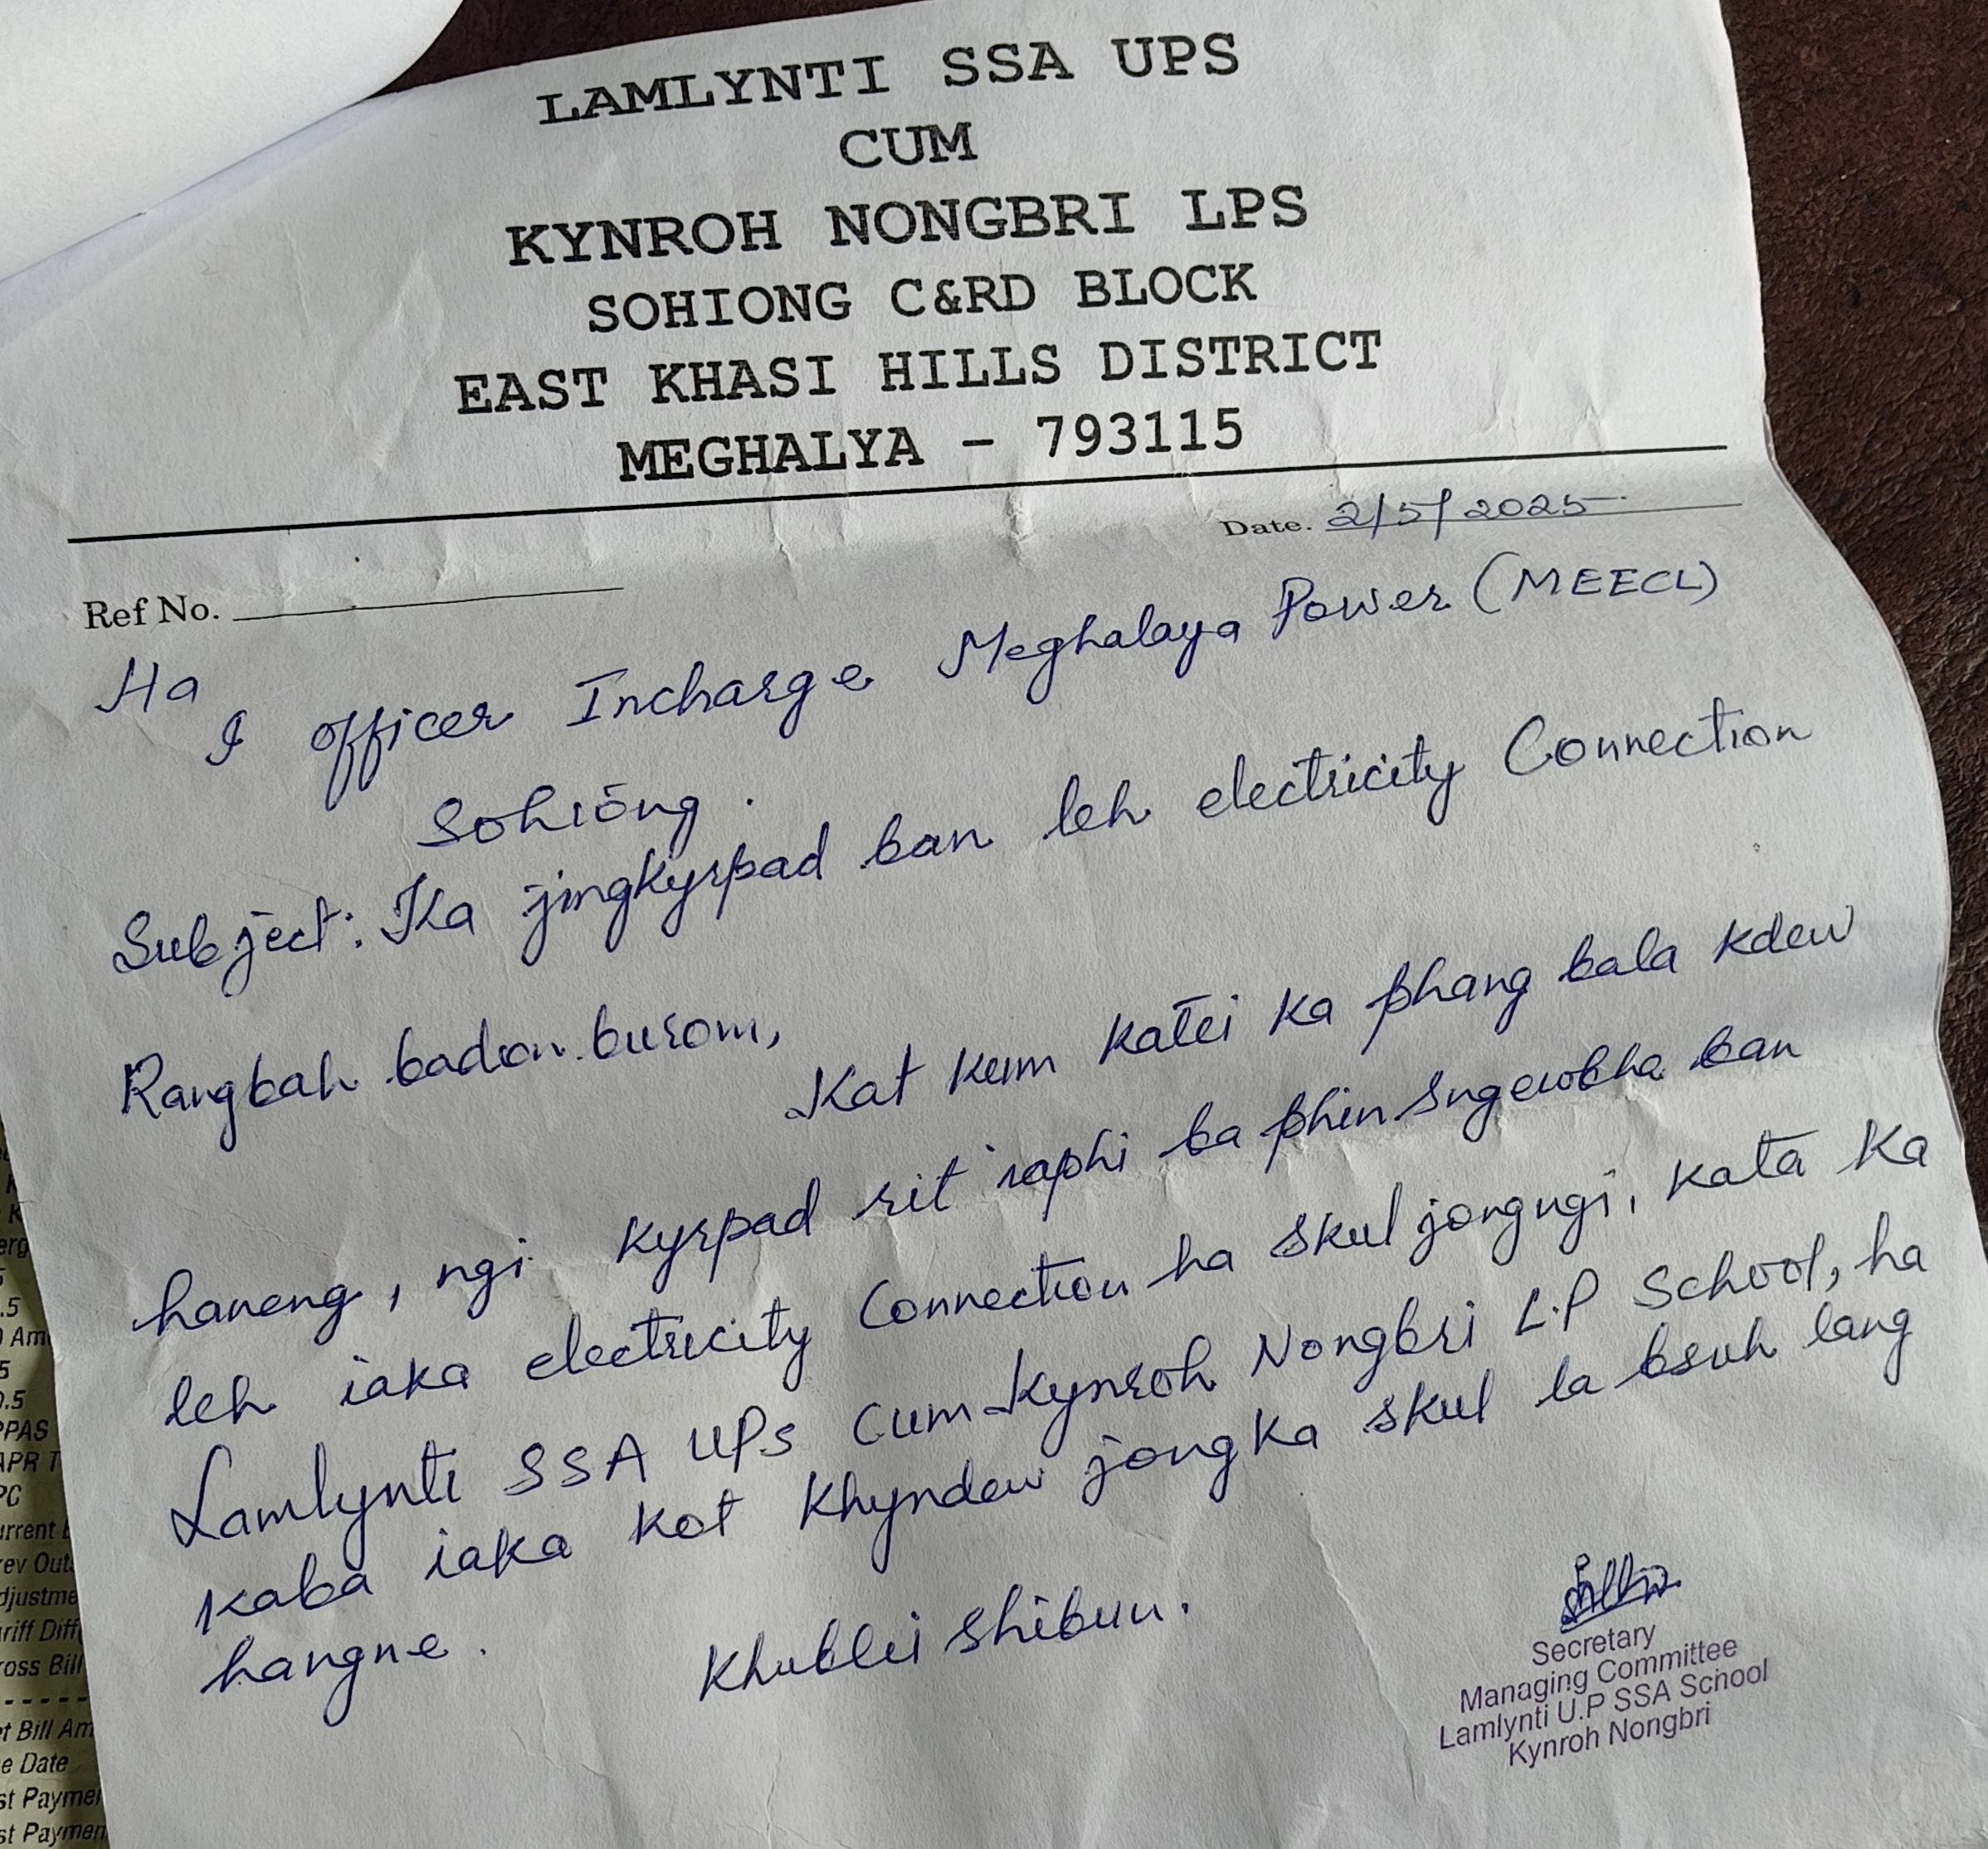 LAMLYNTI SSA UPS
CUM
KYNROH NONGBRI LPS
SOHIONG C&RD BLOCK
EAST KHASI HILLS DISTRICT
MEGHALYA - 793115
Date. 2/5/2025
Ref No.
Ha
I officer Incharge Meghalaya Power (MEECL)
Sohiong.
Subject: Ka jingkyrpad ban leh electricity Connection
Rangbah badon burom,
Kat kum katei ka phang bala kdew
haneng, ngi kyrpad rit raphi ba phin sngewbha ban
leh iaka electricity Connection ha skul jongngi, kata ka
Lamlynti SSA UPs cum Kynroh Nongbri L.P School, ha
kaba iaka kot khyndew jong ka skul la bsuh lang
hangne.
Khublei shibun.
Secretary
Managing Committee
Lamlynti U.P SSA School
Kynroh Nongbri
.5
Am
5
0.5
PPAS
APR T
PC
urrent
rev Outs
djustme
ariff Diff
ross Bill
et Bill Am
e Date
st Paymen
st Paymen